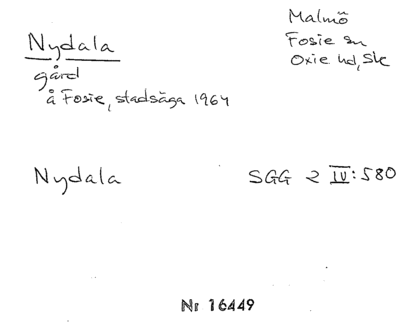 Nydala
gård
å Fosie, stadsäga 1964
Malmö
Fosie sn
Oxie hd, Sk
Nydala SGG 2 IV:580
Nr 16449